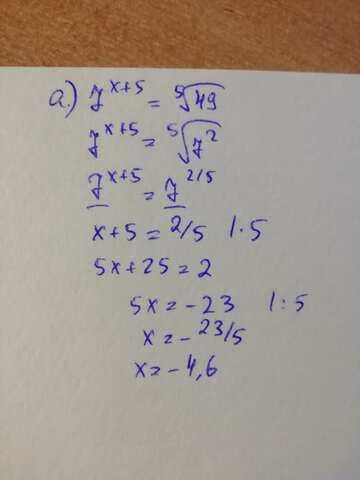 a.) 7^(x+5) = ⁵√49
7^(x+5) = ⁵√7²
7^(x+5) = 7^(2/5)
x+5 = 2/5 |·5
5x+25=2
5x=-23 |:5
x=-23/5
x=-4,6